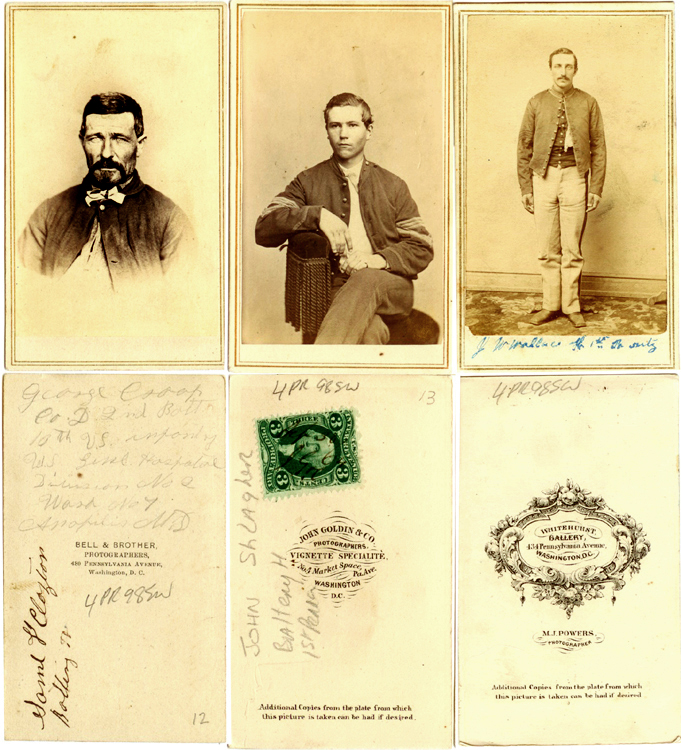 J W Wallace 1st
George Croop
Co. D 2nd Batt
10th U.S. infantry
U.S. Genl. Hospital
Division No 2
Ward No 7
Annapolis M.D.
BELL & BROTHER,
PHOTOGRAPHERS,
480 PENNSYLVANIA AVENUE,
Washington, D. C.
4PR98SW
Saml H Clayton
Battery
12
4PR98SW
13
THREE
3 CENTS 3
JOHN GOLDIN & CO.
PHOTOGRAPHERS.
VIGNETTE SPECIALITÉ,
No. 5 Market Space,
Pa. Ave.
WASHINGTON
D.C.
JOHN
Battery H
1st
Additional Copies from the plate from which
this picture is taken can be had if desired.
4PR98SW
WHITEHURST
GALLERY,
434 Pennsylvania Avenue,
WASHINGTON, D.C.
M.J. POWERS.
PHOTOGRAPHER
Additional Copies from the plate from which
this picture is taken can be had if desired